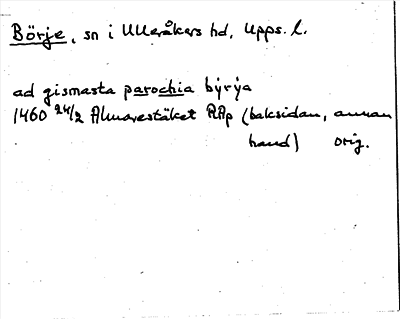 Börje, sn i Ulleråkers hd, Upps. l.
ad gismasta parochia byrya
1460 24/2 Almarestäket RAp (baksidan, annan
hand) orig.